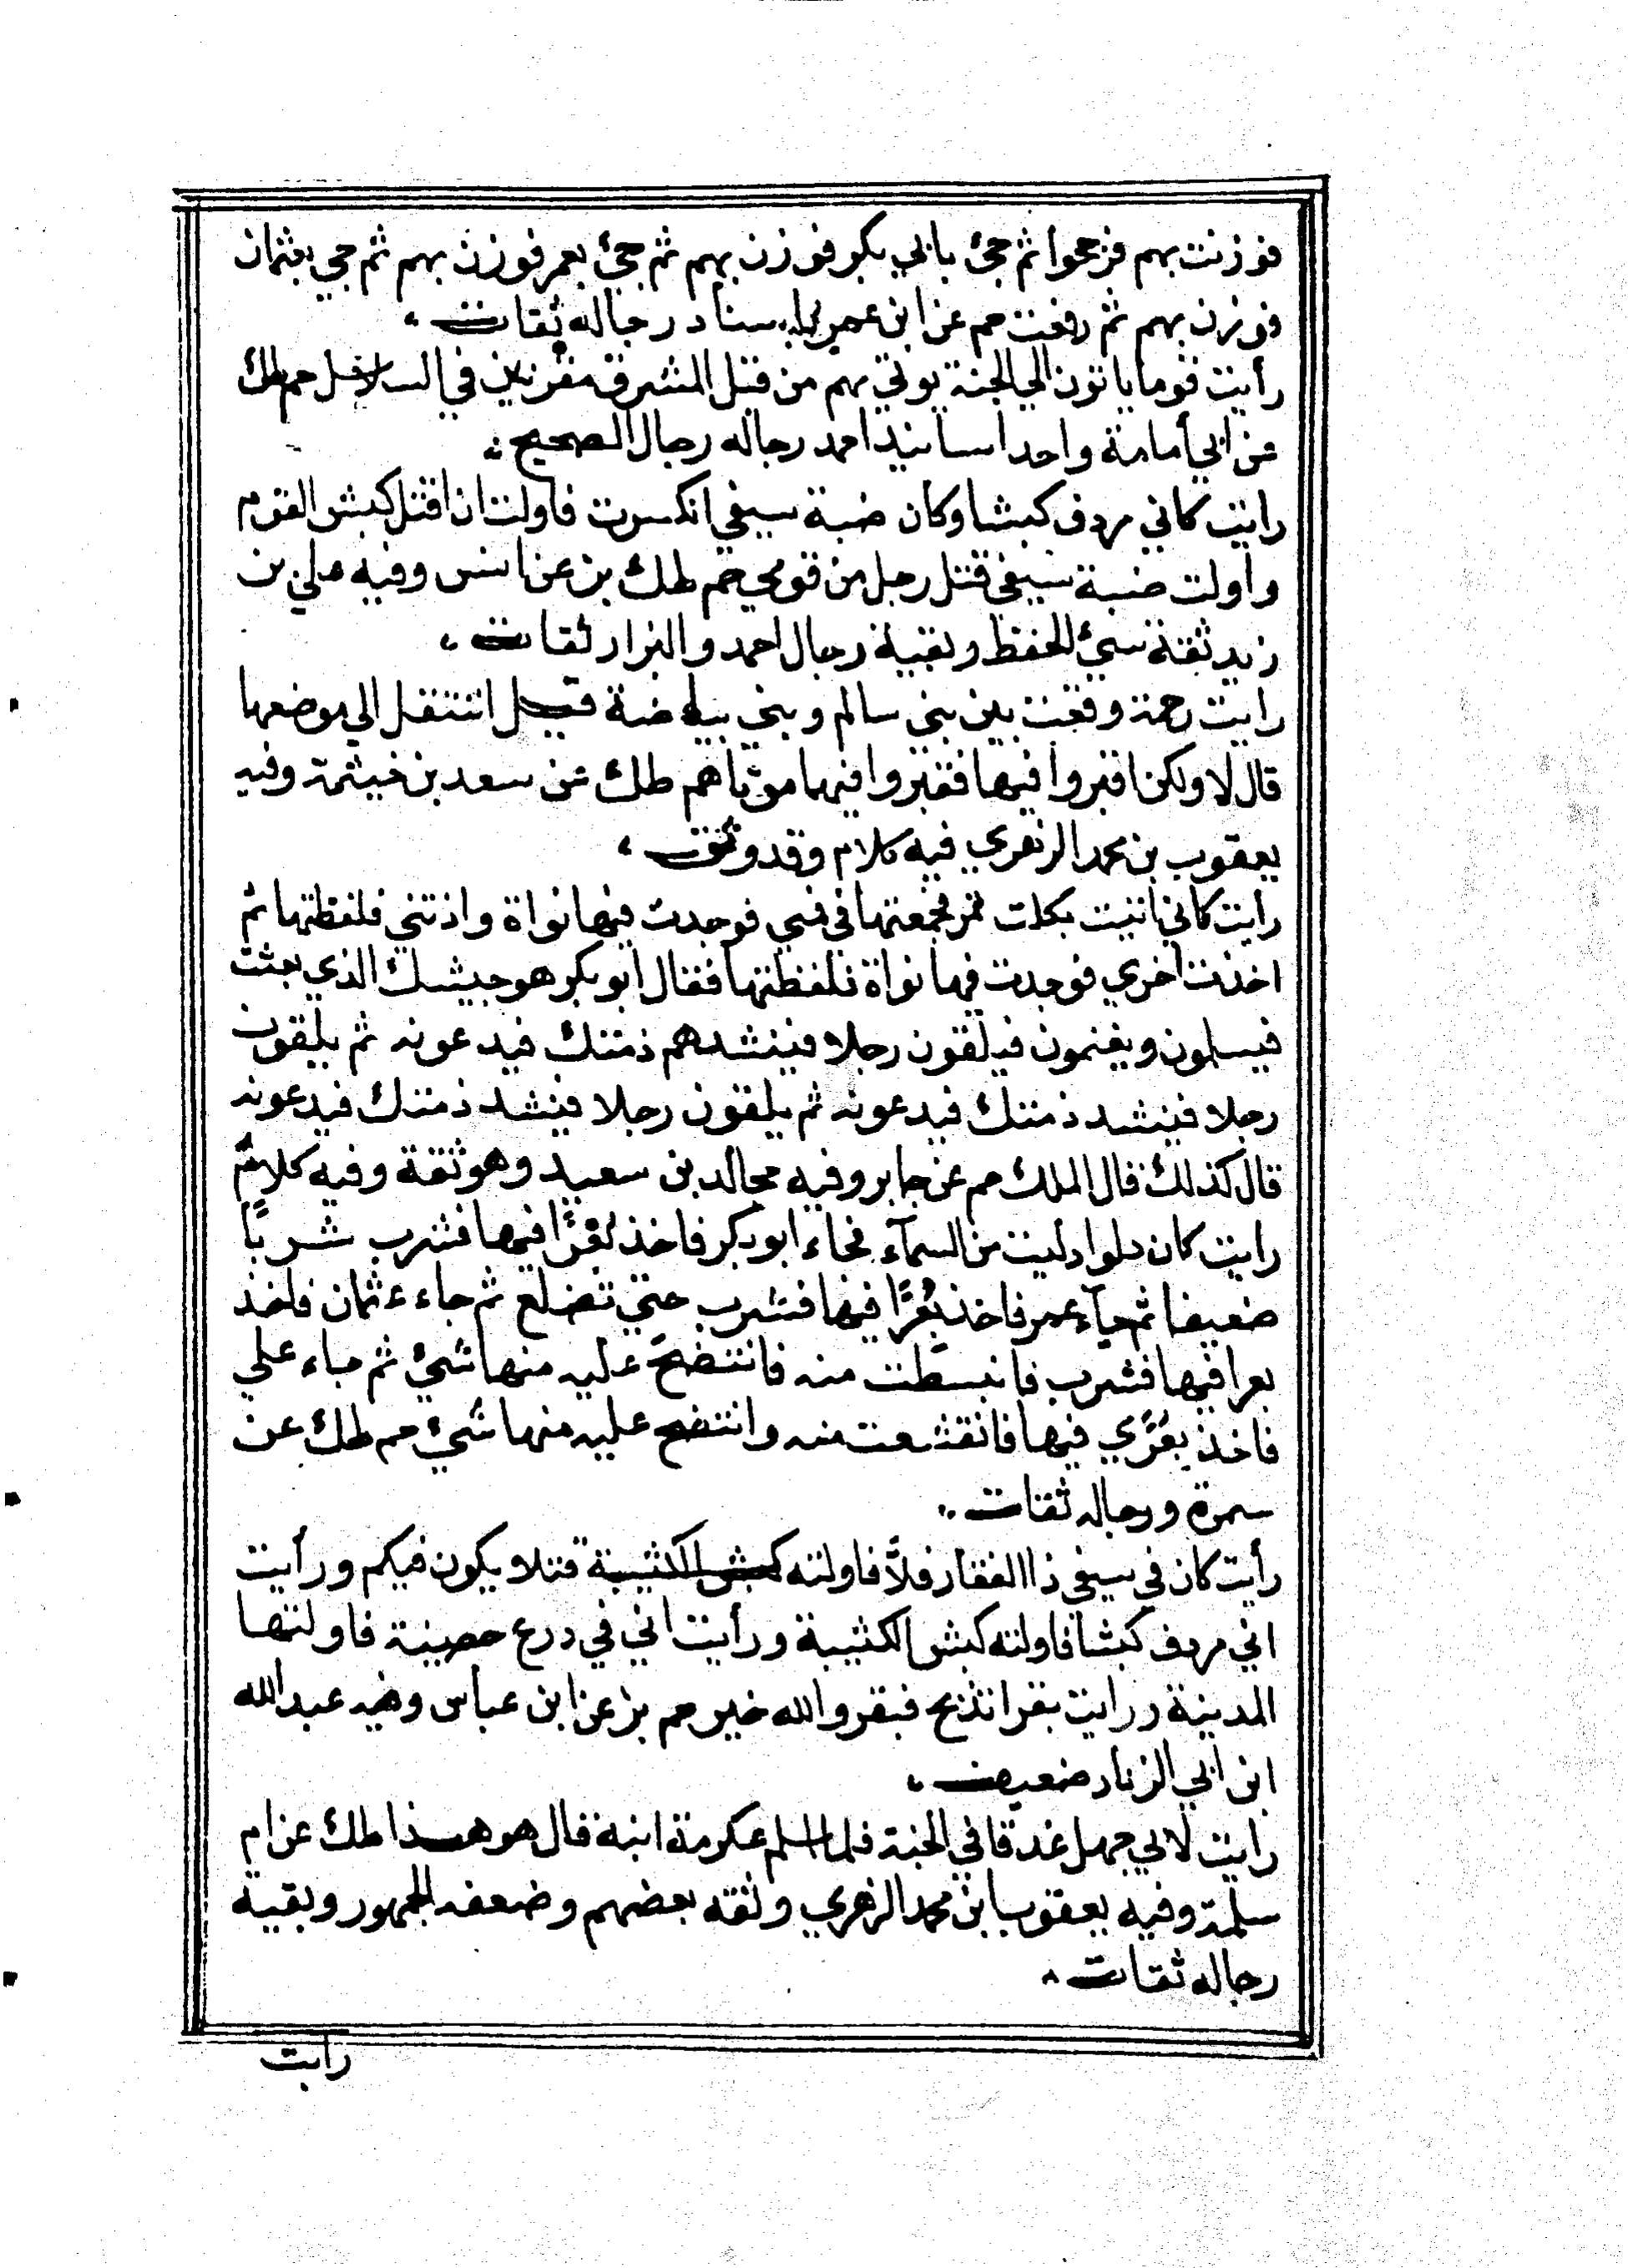 فوزنت بهم فرجحوا ثم جئ بابي بكر فوزن بهم ثم جئ بعمر فوزن بهم ثم جي بعثمان
فوزن بهم ثم رفعت حم عن ابن عمر باسناد رجاله ثقات
رأيت قوما ياتون الي الجنة يوتي بهم من قبل المشرق مقرنين في السلاسل حم طك
عن ابي أمامة واحد اسانيد احمد رجاله رجال الصحيح
رايت كاني مردف كبشا وكان ضبة سيفي انكسرت فاولت ان اقتل كبش القوم
واولت ضبة سيفي قتل رجل من قومي حم طك بز عن انس وفيه علي بن
زيد ثقة سيئ الحفظ وبقية رجال احمد والبزار ثقات
رايت رحمة وقعت بين بني سالم وبني بياضة قيل انتنقل الي موضعها
قال لا ولكن اقبروا فيها فقبروا فيها موتاهم طك عن سعد بن خيثمة وفيه
يعقوب بن محمد الزهري فيه كلام وقد وثق
رايت كاني اتيت بكلت تمر فجمعتها في فمي فوجدت فيها نواة واذتني فلفظتها ثم
اخذت اخري فوجدت فيها نواة فلفظتها فقال أبو بكر هو جيشك الذي بعثت
فيسلمون ويغنمون فيلقون رجلا فينشدهم ذمتك فيدعونه ثم يلقون
رجلا فينشد ذمتك فيدعونه ثم يلقون رجلا فينشد ذمتك فيدعونه
قال كذلك قال الملك حم عن جابر وفيه مجالد بن سعيد وهو ثقة وفيه كلام
رايت كان دلوا دليت من السمآء فجاء ابو بكر فاخذ فيها فشرب شربًا
ضعيفا ثم جآء عمر فاخذ بعُرًا فيها فشرب حتي تضلع ثم جاء عثمان فاخذ
بعرا فيها فشرب فانبسطت منه فانتضح عليه منها شيئ ثم جاء علي
فاخذ بعُرًي فيها فانقشعت منه وانتضح عليه منها شيئ حم طك عن
سمرة ورجاله ثقات
رأيت كان في سيفي ذا الفقار فلاًّ فاولته كبش الكثيبة قتلا يكون فيكم ورأيت
اني مردف كبشا فاولته كبش الكثيبة ورأيت اني في درع حصينة فاولتها
المدينة ورايت بقرا تذبح فبقر والله خير حم بز عن ابن عباس وفيه عبد الله
ابن ابي الزناد ضعيف
رايت لابي جهل عذقا في الجنة فلما اسلم عكرمة ابنه قال هو هذا طك عن ام
سلمة وفيه يعقوب ابن محمد الزهري وثقه بعضهم وضعفه الجمهور وبقية
رجاله ثقات
رايت